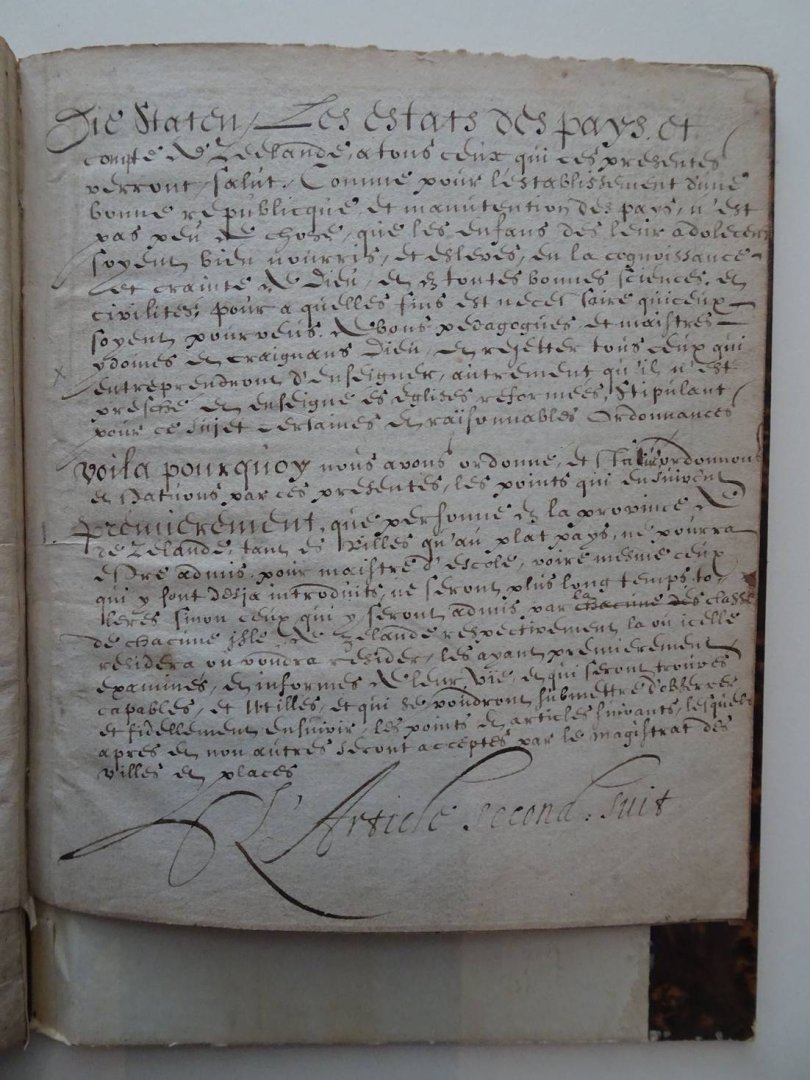 Die Staten / Les estats des pays. et
compte de Zeelande, a tous ceux qui ces presentes
verront, salut. Comme pour lestablissement d'une
bonne republicque et manutention des pays, n'est
pas peu de chose, que les enfans des leur adolecen
soyent bien nourris, et esleves, en la cognoissance
et crainte de Dieu, en toutes bonnes sciences, en
civilites, pour a quelles fins est neces saire qu'iceux
soyent pourveus. de bons pedagogues, et maistres
ydoines en craignans Dieu, en rejetter tous ceux qui
entreprendront d'enseigner, autrement qu'il n'est
presche en enseigne es eglises reformees, Stipulant
pour ce sujet certaines en raisonnables Ordonnances
Voila pourquoy nous avons ordonne, et ordonnons
en statuons par ces presentes, les points qui ensuivent
Premierement, que personne en la province de
de Zelande, tant es villes qu'au plat pays, ne pourra
estre admis pour maistre d'escole, voire mesme ceux
qui y sont desja introduits, ne seront plus long temps to-
lleres sinon ceux qui y seront admis par les chacune des classe
de chacune isle de Zelande respectivement la ou icelle
residera ou voudra resider, les ayant premierement
examines, en informes de leur vie, en qui seront trouves
capables, et utilles, et qui se voudront submettre d'observer
et fidellement ensuivir, les points en articles suivants, lesquels
apres en non autres seront acceptes par le magistrat des
villes en places
L'Article second. suit